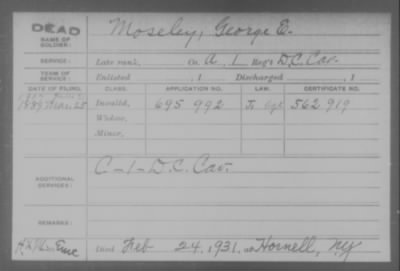 DEAD
NAME OF SOLDIER: Moseley, George E.
SERVICE: Late rank, Co. A, 1 Reg't D.C. Cav.
TERM OF SERVICE: Enlisted , 1 Discharged , 1
DATE OF FILING. CLASS. APPLICATION NO. LAW. CERTIFICATE NO.
1889 Mar. 28 Invalid, 695 992 562 919
Widow,
Minor,
ADDITIONAL SERVICES: C-1-D.C. Cav.
REMARKS:
Died Feb 24, 1931, at Hornell, N.Y.